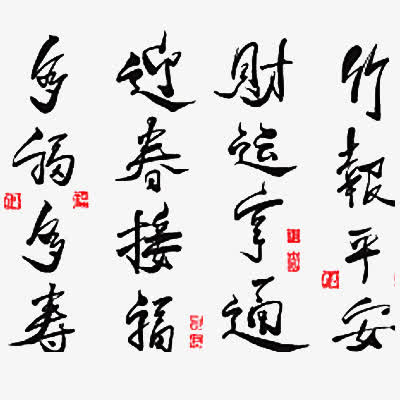 竹報平安
财运亨通
迎春接福
多福多寿